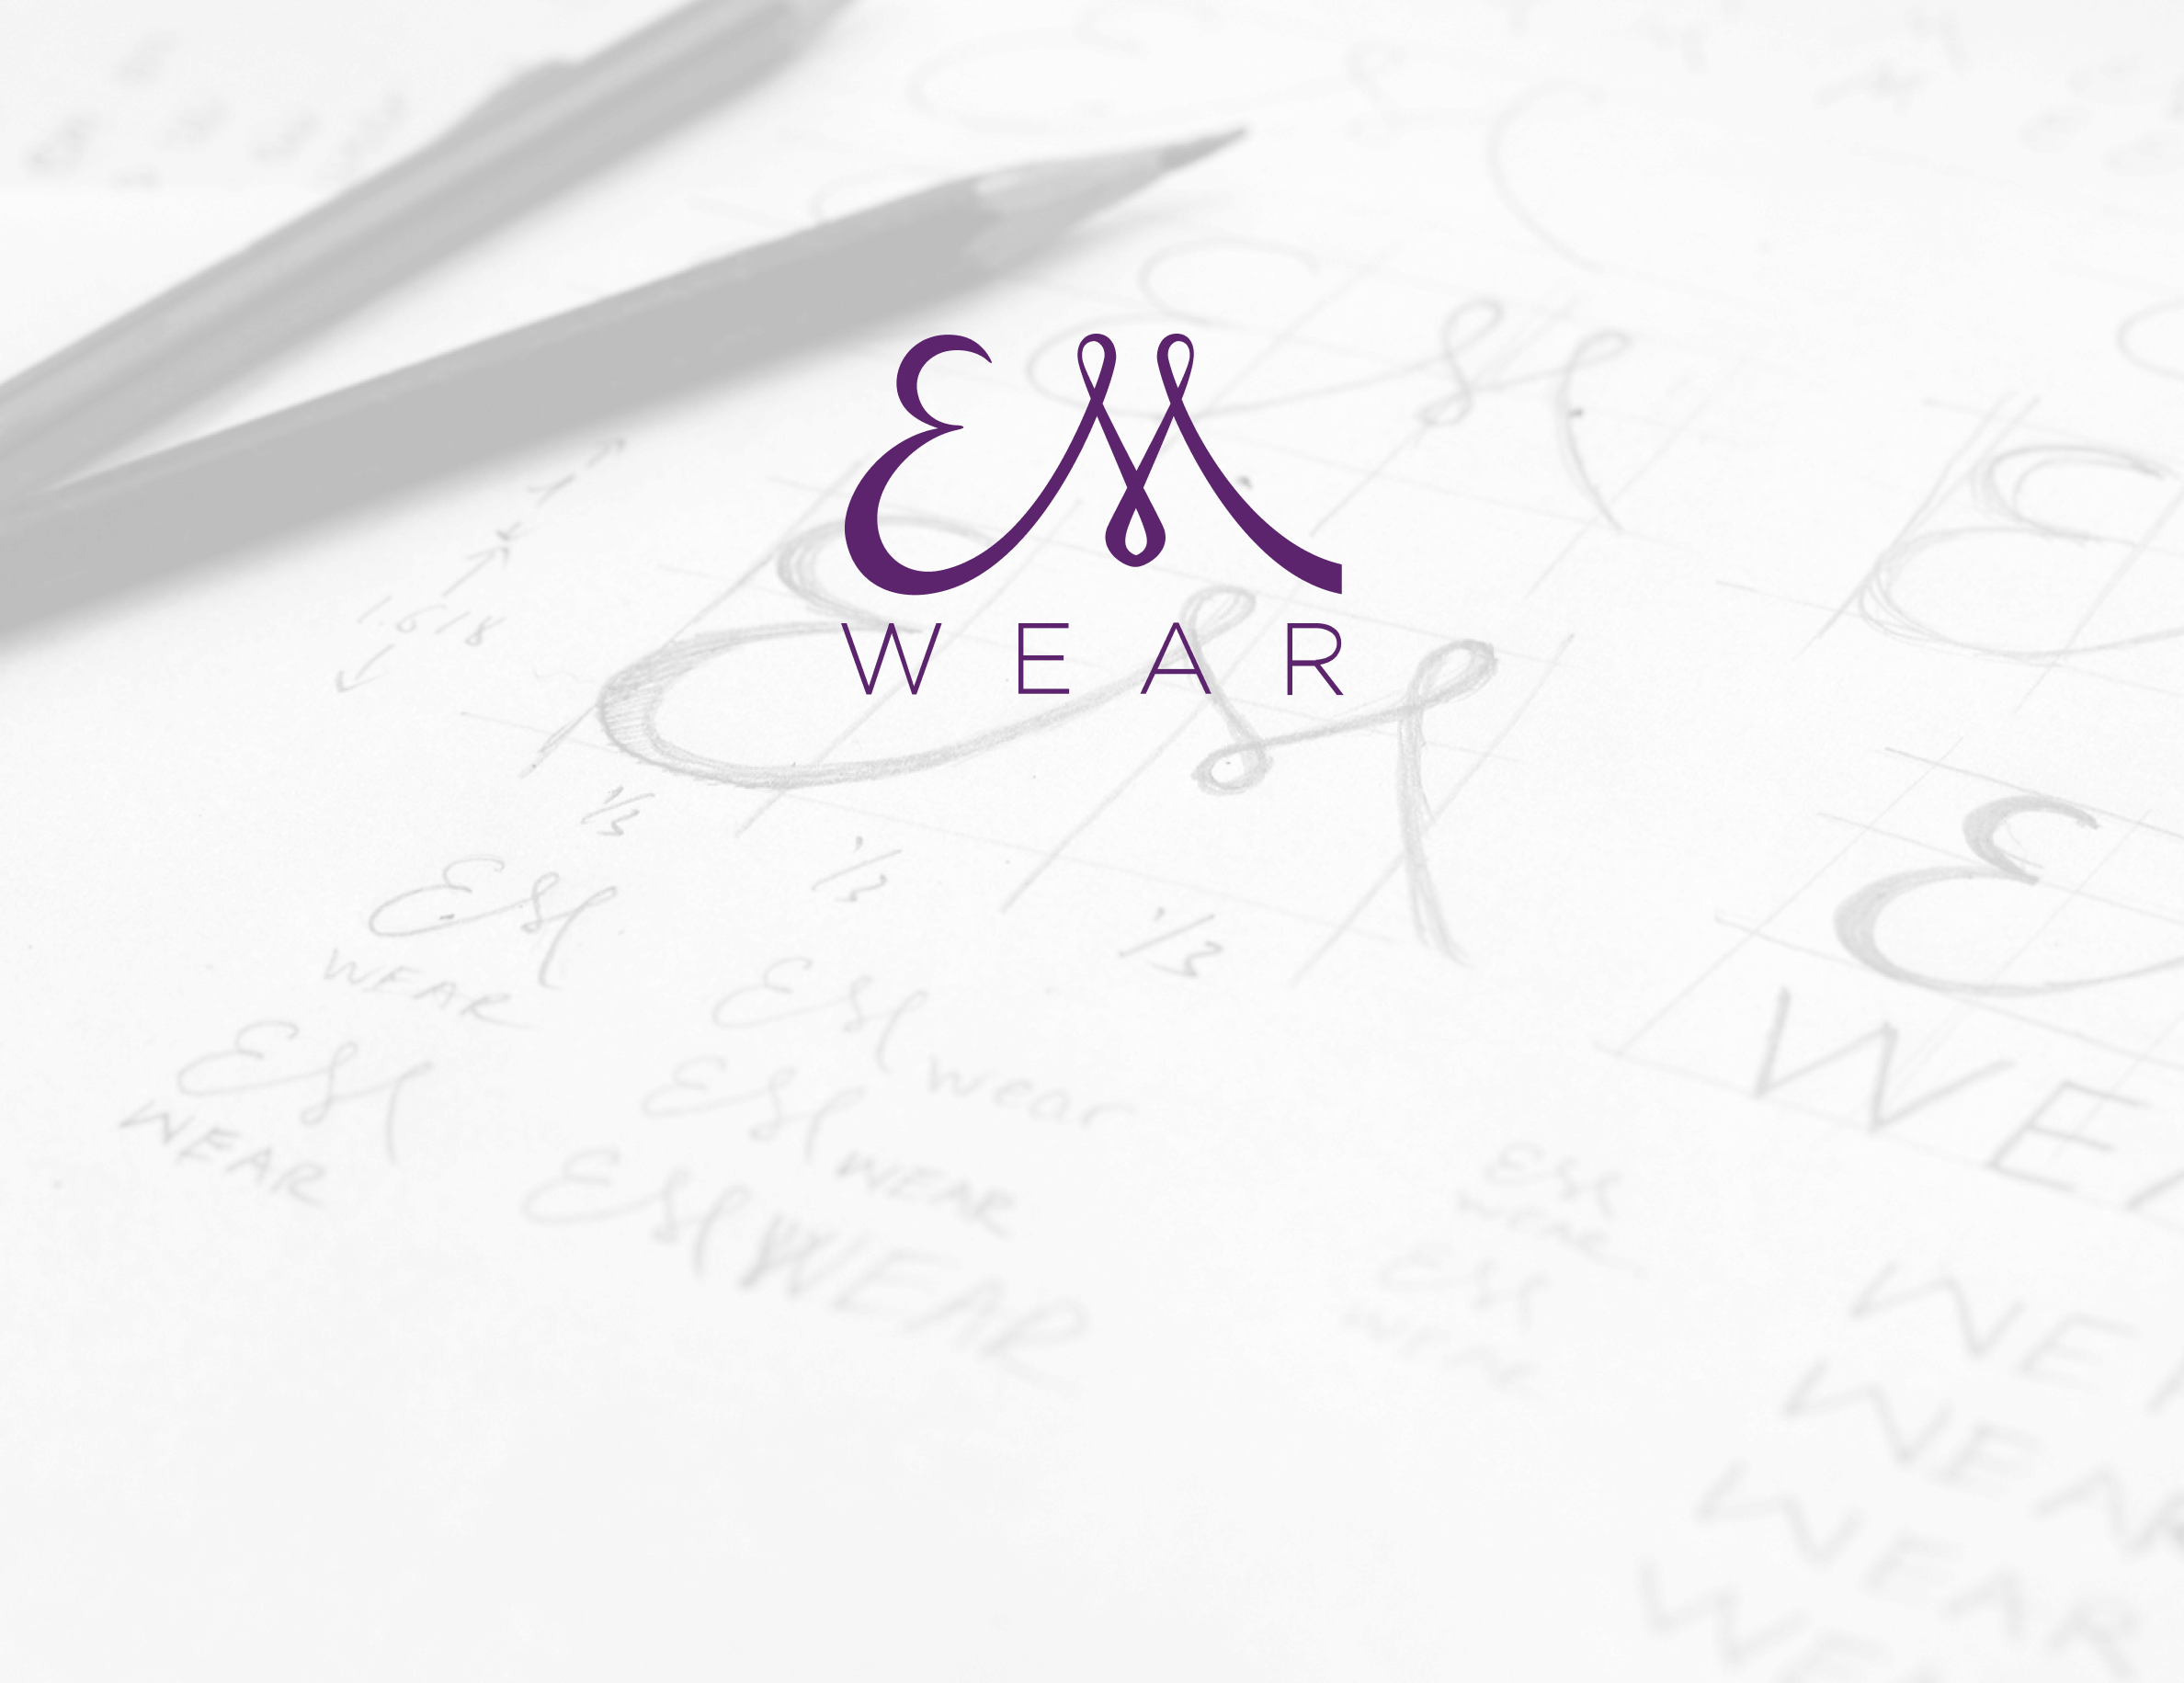 EM
WEAR
1
1.618
1/3
1/3
1/3
EM
WEAR
EM
WEAR
EM wear
EM WEAR
EM WEAR
EM
wear
EM
WEAR
E
WEA
WEA
WEAR
WEAR
WEA